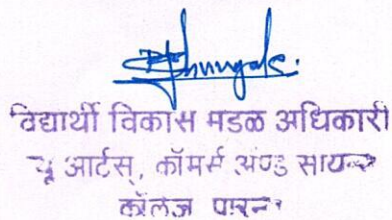 विद्यार्थी विकास मडळ अधिकारी
न्यू आर्टस्, कॉमर्स अॅण्ड सायन्स
कॉलेज पारनेर